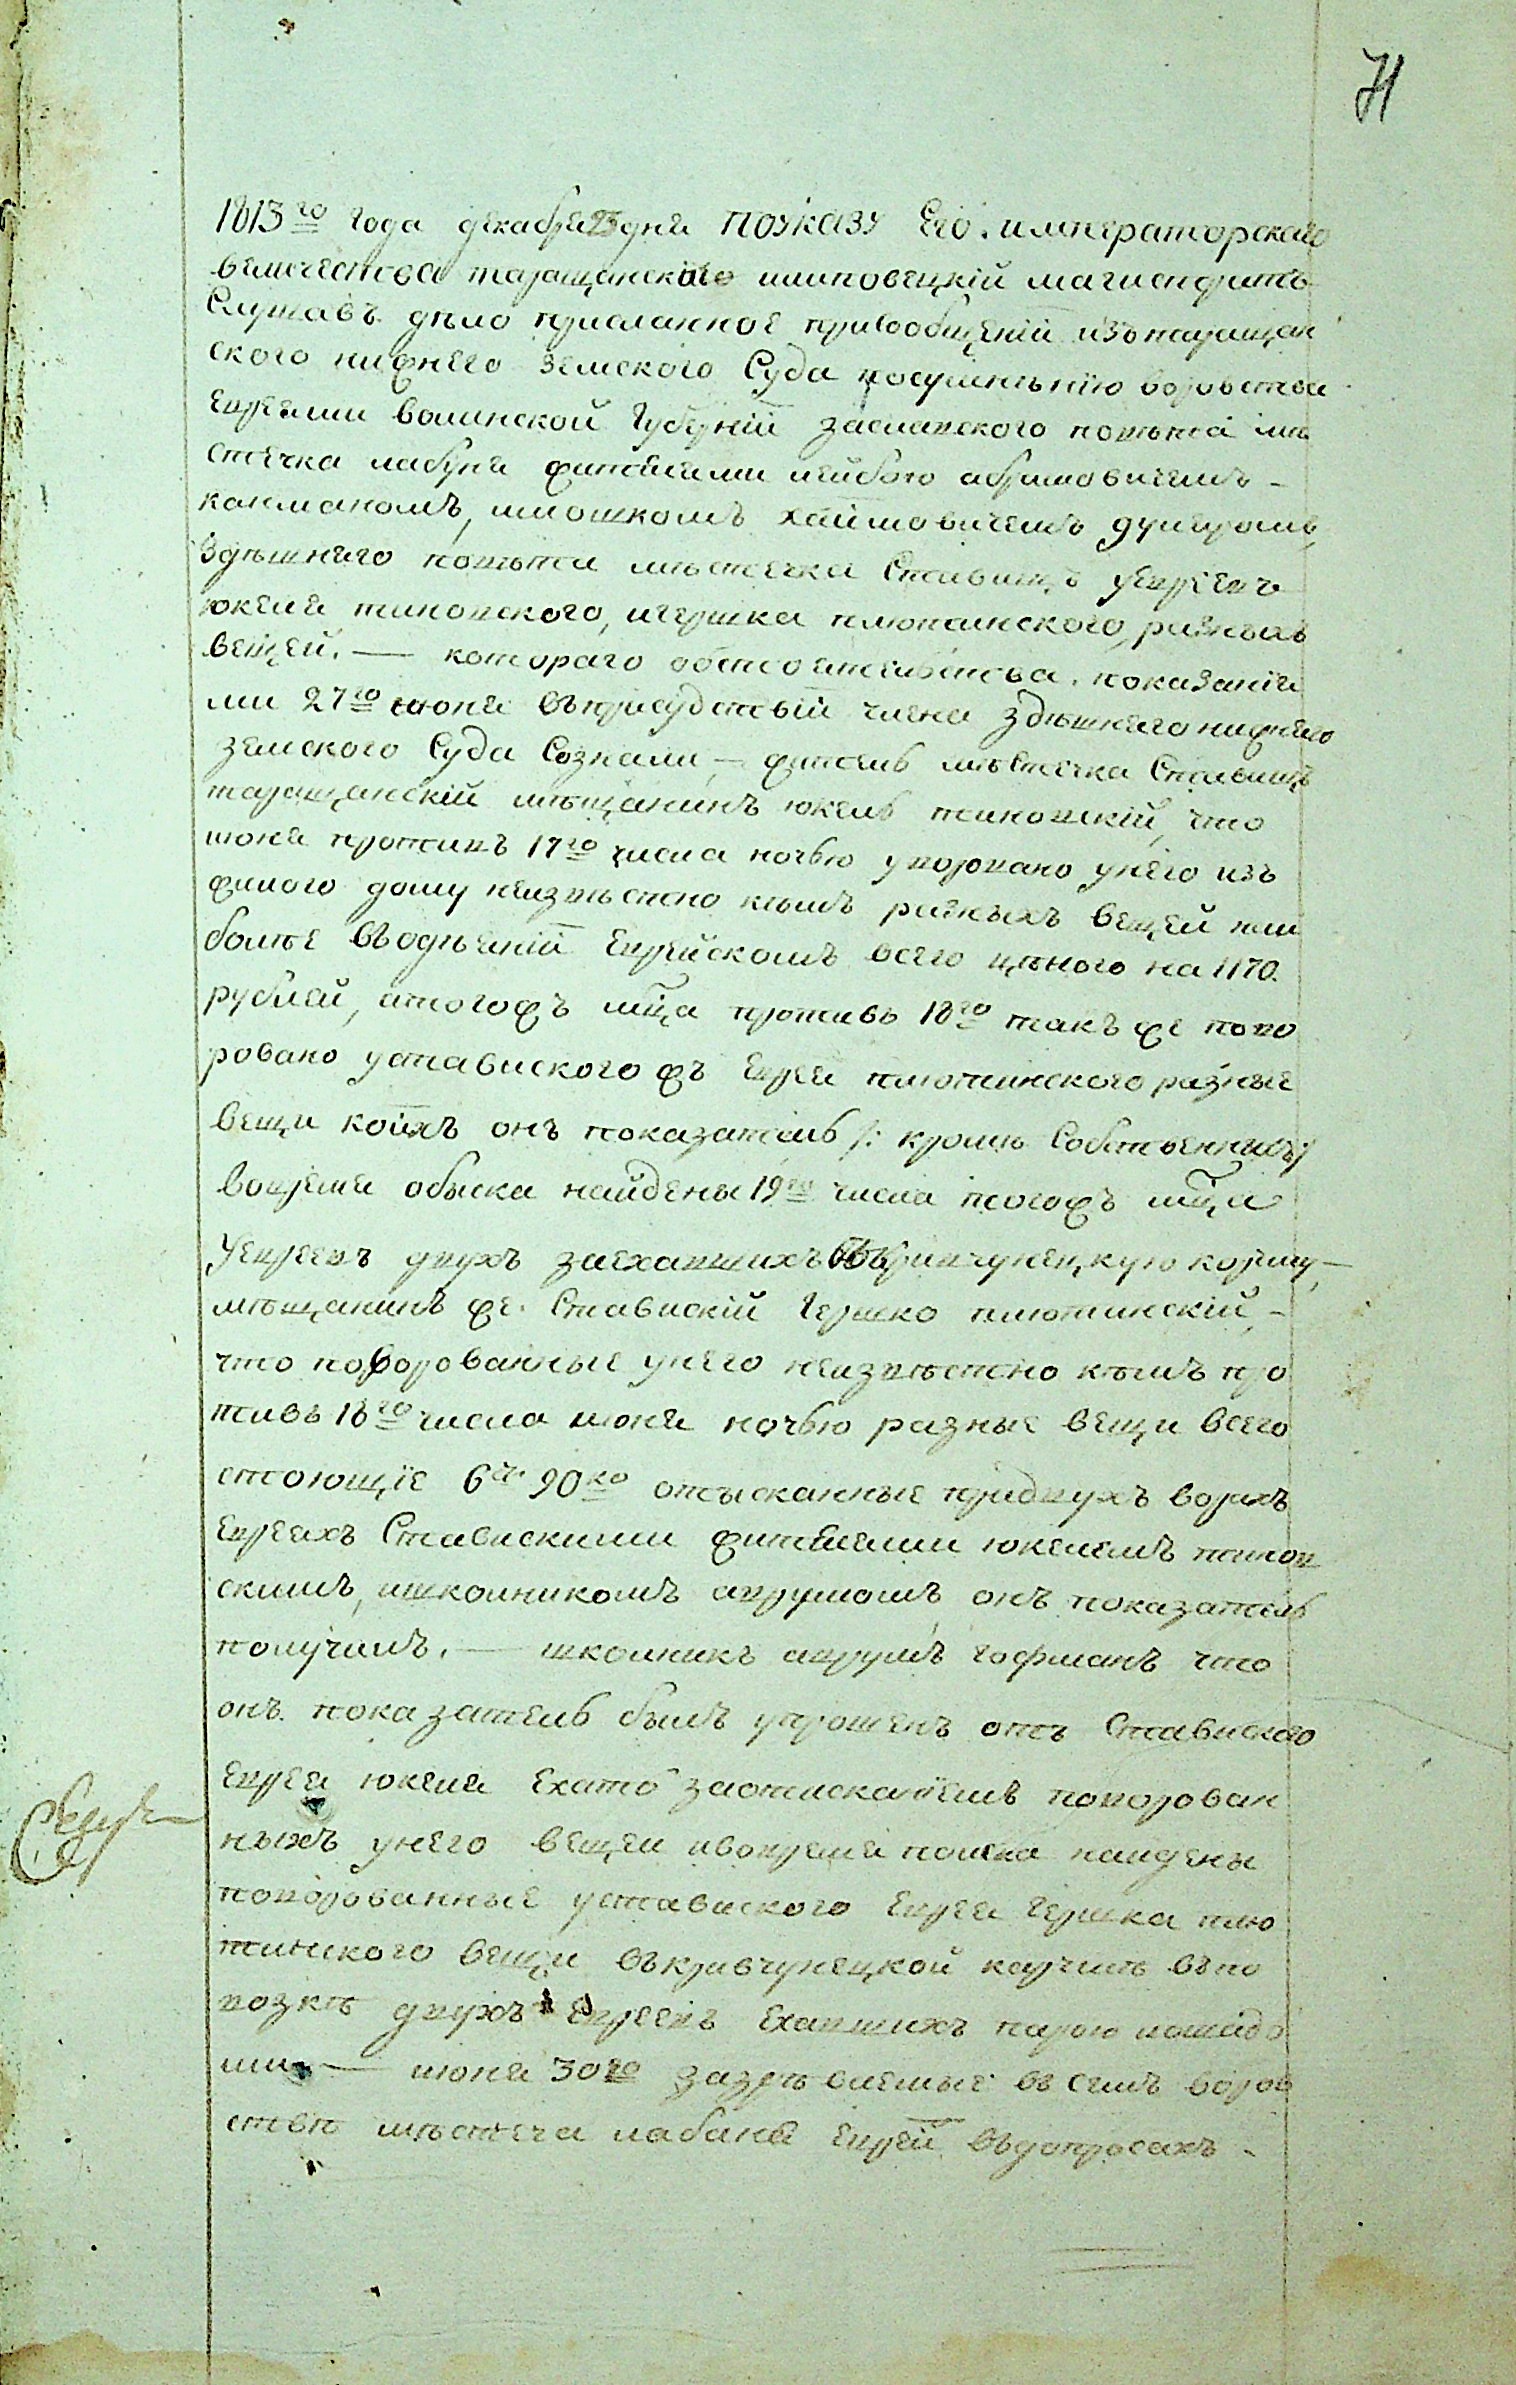 71
1813го года декабря 23 дня по указу Его императорскаго
величества таращанского шиповецкій магистратъ
Слушавъ дѣло присланное присообщеніи изъ таращан
ского нижнего земского Суда посумнѣнію воровства
евреями волинской Губерніи заславского повѣта мѣ
стечка лабуня жителями лейбою абрамовичемъ
калманомъ, мошкомъ хаймовичемъ
здѣшнего повѣта мѣстечка Ставищъ уевреевъ
юкеля тиновского, игершка плютинского, разныхъ
вещей. — котораго обстоятельства. показанія
ми 27го июня въ присудствіи члена здѣшнего нижнего
земского Суда Сознали, — житель мѣстечка Ставищъ
таращанскій мѣщанинъ юкель тиновскій, что
июня противъ 17го числа ночью уворовано унего изъ
жилого дому неизвѣстно кѣмъ разныхъ вещей наи
более въодѣяніи Еврейскомъ всего цѣного на 1170.
рублей, атогожъ мца противъ 18го такъ же пово
ровано уставиского жъ Еврея плютинского разные
вещи коихъ онъ показатель /: кромѣ Собственнихъ :/
вовремя обыска найдены 19го числа тогожъ мца
уевреевъ двухъ заехавшихъ въ кривчунецкую корчму,
мѣщанинъ же. Ставискій Гершко плютинскій, —
что поворованные унего неизвѣстно кѣмъ про
тивъ 18го числа июня ночью разные вещи всего
стоющіе 6 р. 90 ко отысканные придвухъ ворахъ
евреяхъ Ставискими жителями юкелемъ тинов
скимъ, ишколникомъ аврумомъ онъ показатель
получилъ. — школникъ аврумъ гофманъ что
онъ показатель былъ упрошенъ отъ Ставиского
еврея юкеля Ехать заотисканіемъ поворован
ныхъ унего вещей ивовремя поиска найдены
поворованные уставиского Еврея Гершка плю
тинского вещи въкривчунецкой карчмѣ въпо
возкѣ двухъ Евреевъ Ехавшихъ парою лошадь
ми — июня 30го зазрѣваемые въ семъ воров
ствѣ мѣстеча лабаня Евреи въдопросахъ —